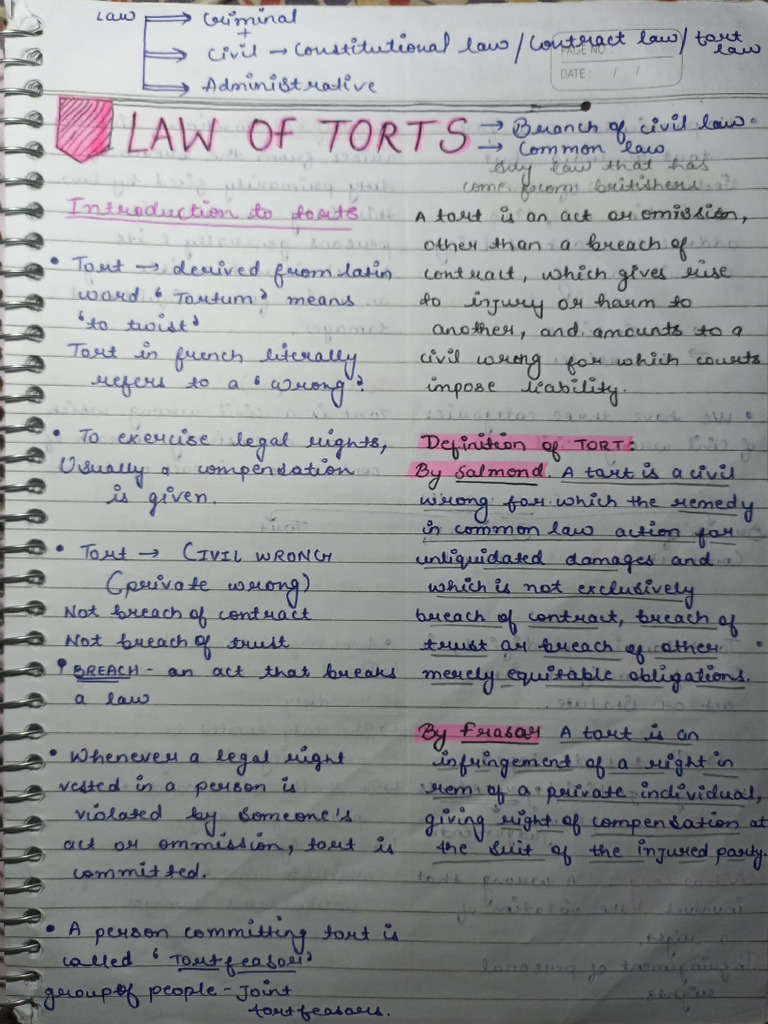 Law → Criminal
+
→ Civil → Constitutional law / Contract law / tort law
→ Administrative
PAGE NO.:
DATE: / /
LAW OF TORTS → Branch of civil law.
→ Common law
law that has
come from britishers
Introduction to torts
• Tort → derived from latin
word 'Tortum' means
'to twist'
Tort in french literally
refers to a 'wrong'.
• To exercise legal rights,
Usually a compensation
is given.
• Tort → CIVIL WRONG
(private wrong)
Not breach of contract
Not breach of trust
• BREACH - an act that breaks
a law
• Whenever a legal right
vested in a person is
violated by someone's
act or ommission, tort is
committed.
• A person committing tort is
called 'Tortfeasor'
group of people - Joint
tortfeasors.
A tort is an act or omission,
other than a breach of
contract, which gives rise
to injury or harm to
another, and amounts to a
civil wrong for which courts
impose liability.
Definition of TORT:
By Salmond. A tort is a civil
wrong for which the remedy
in common law action for
unliquidated damages and
which is not exclusively
breach of contract, breach of
trust or breach of other
merely equitable obligations.
By Frasar A tort is an
infringement of a right in
rem of a private individual,
giving right of compensation at
the suit of the injured party.